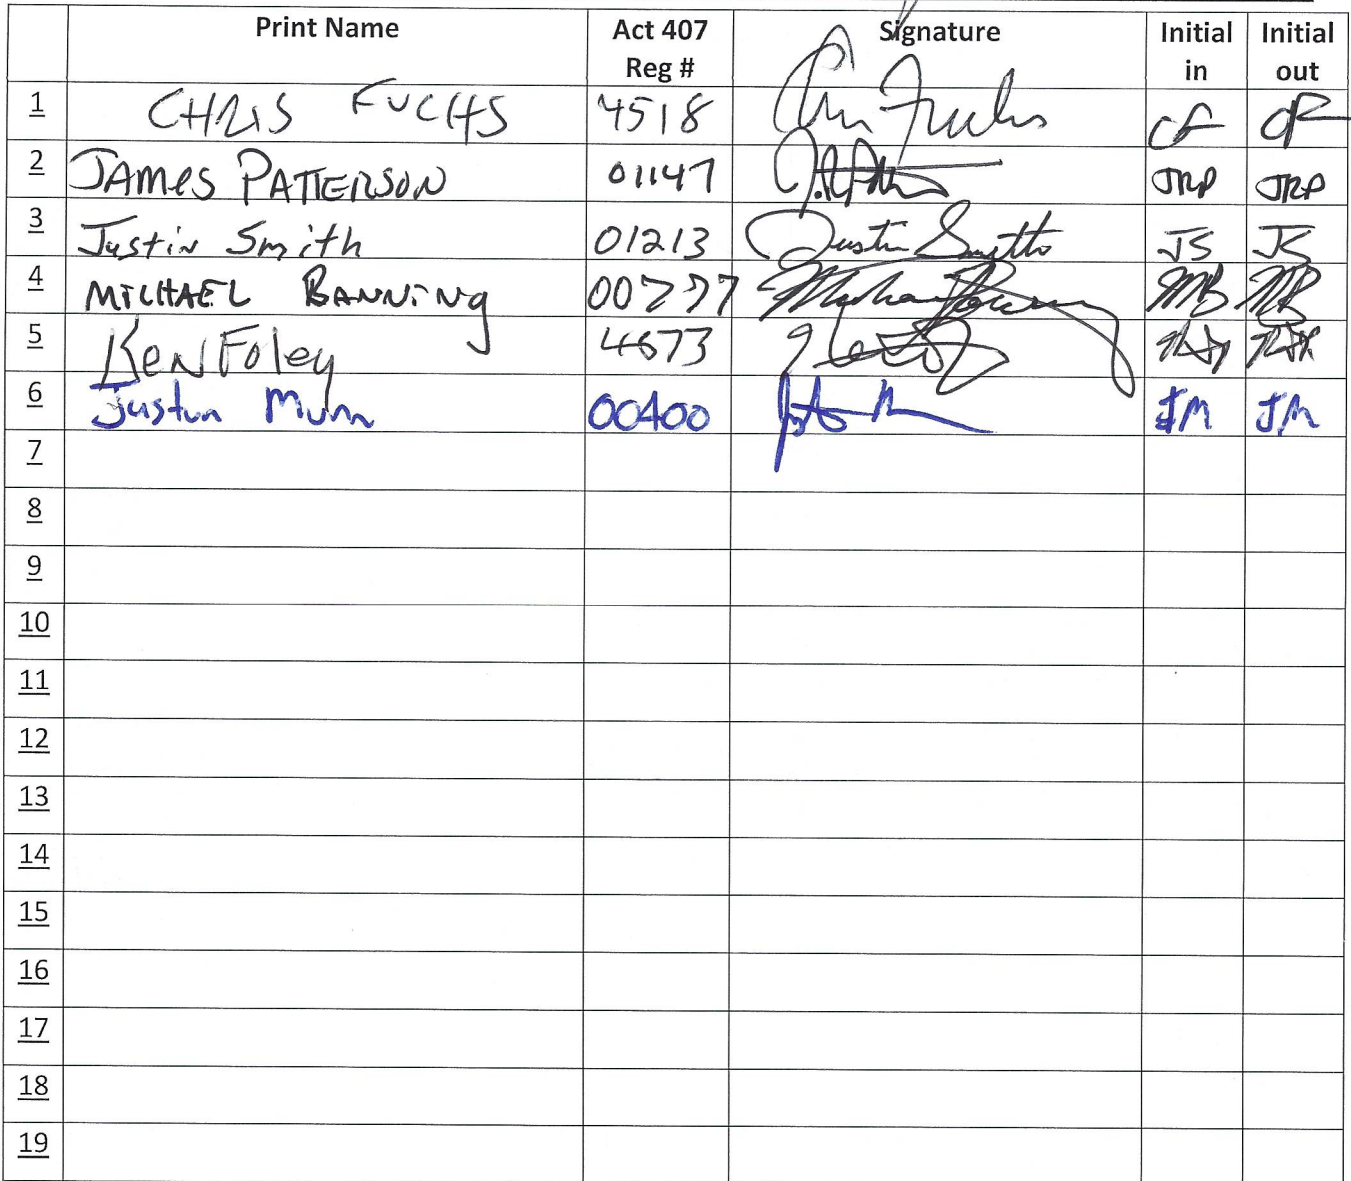 Print Name Act 407 Signature Initial Initial
Reg # in out
1 CHRIS FUCHS 4518 Chris Fuchs CF CF
2 JAMES PATTERSON 01147 JRP JRP
3 Justin Smith 01213 Justin Smith JS JS
4 MICHAEL BANNING 00777 Michael Banning MB MB
5 Ken Foley 4673
6 Justin Munn 00400 JM JM
7
8
9
10
11
12
13
14
15
16
17
18
19